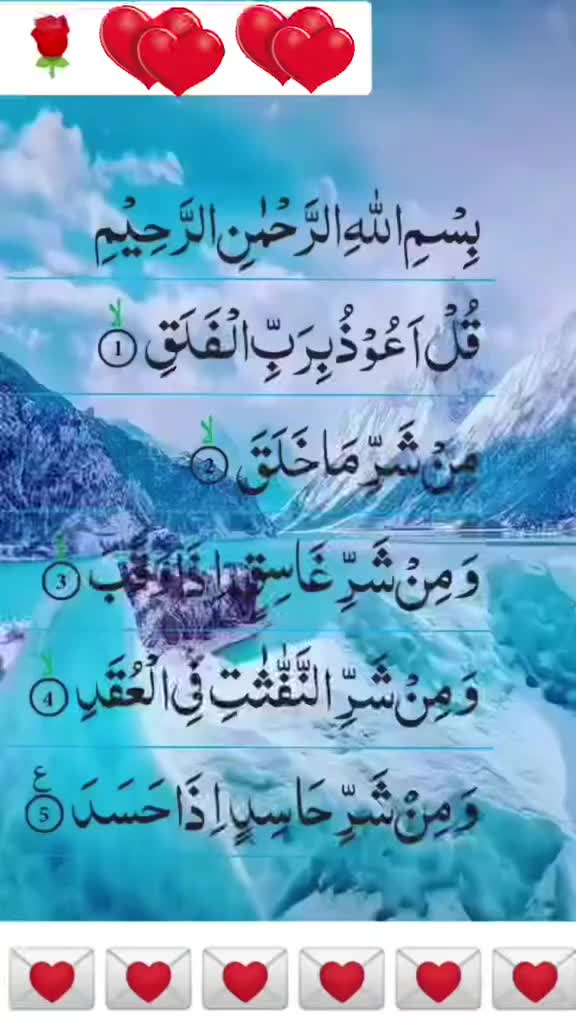 بِسْمِ اللهِ الرَّحْمٰنِ الرَّحِيْمِ
قُلْ اَعُوْذُ بِرَبِّ الْفَلَقِ ۙ ①
مِنْ شَرِّ مَا خَلَقَ ۙ ②
وَ مِنْ شَرِّ غَاسِقٍ اِذَا وَقَبَ ۙ ③
وَ مِنْ شَرِّ النَّفّٰثٰتِ فِي الْعُقَدِ ۙ ④
وَ مِنْ شَرِّ حَاسِدٍ اِذَا حَسَدَ ع ⑤